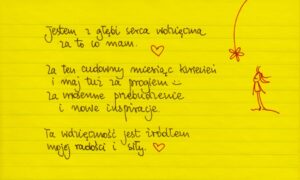 Jestem z głębi serca wdzięczna
za to co mam.
Za ten cudowny miesiąc kwiecień
i maj tuż za progiem
za wiosenne przebudzenie
i nowe inspiracje.
Ta wdzięczność jest źródłem
mojej radości i siły.